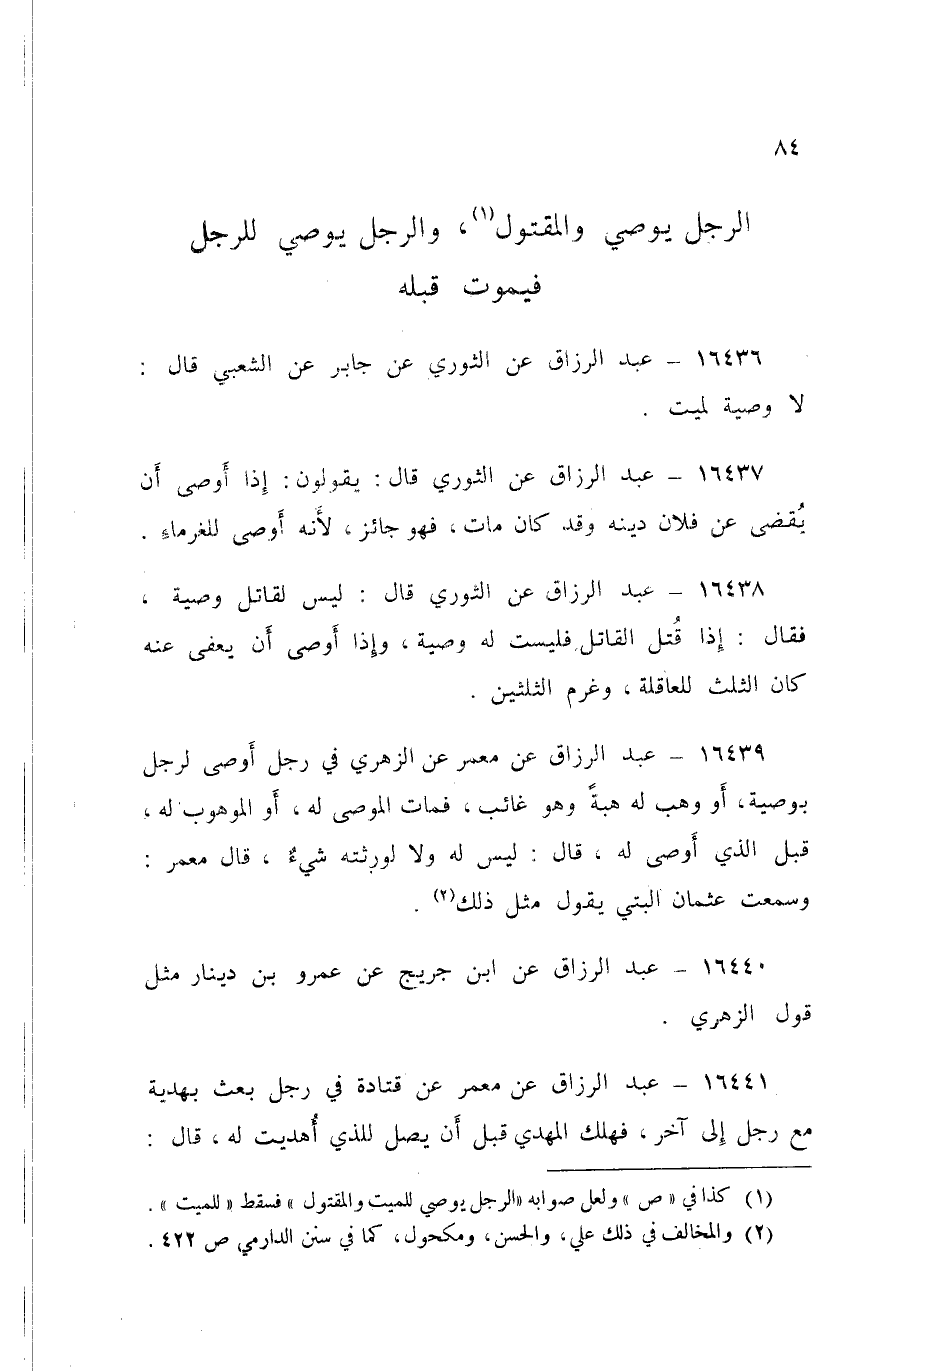 ٨٤
الرجل يوصي والمقتول(١)، والرجل يوصي للرجل
فيموت قبله
١٦٤٣٦ – عبد الرزاق عن الثوري عن جابر عن الشعبي قال :
لا وصية لميت .
١٦٤٣٧ – عبد الرزاق عن الثوري قال : يقولون : إذا أوصى أن
يُقضى عن فلان دينه وقد كان مات ، فهو جائز ، لأنه أوصى للغرماء .
١٦٤٣٨ – عبد الرزاق عن الثوري قال : ليس لقاتل وصية ،
فقال : إذا قُتل القاتل فليست له وصية ، وإذا أوصى أن يعفى عنه
كان الثلث للعاقلة ، وغرم الثلثين .
١٦٤٣٩ – عبد الرزاق عن معمر عن الزهري في رجل أوصى لرجل
بوصية ، أو وهب له هبةً وهو غائب ، فمات الموصى له ، أو الموهوب له ،
قبل الذي أوصى له ، قال : ليس له ولا لورثته شيءٌ ، قال معمر :
وسمعت عثمان البتي يقول مثل ذلك(٢) .
١٦٤٤٠ – عبد الرزاق عن ابن جريج عن عمرو بن دينار مثل
قول الزهري .
١٦٤٤١ – عبد الرزاق عن معمر عن قتادة في رجل بعث بهدية
مع رجل إلى آخر ، فهلك المهدي قبل أن يصل للذي أُهديت له ، قال :
(١) كذا في « ص » ولعل صوابه «الرجل يوصي للميت والمقتول » فسقط « للميت » .
(٢) والمخالف في ذلك علي، والحسن، ومكحول، كما في سنن الدارمي ص ٤٢٢ .